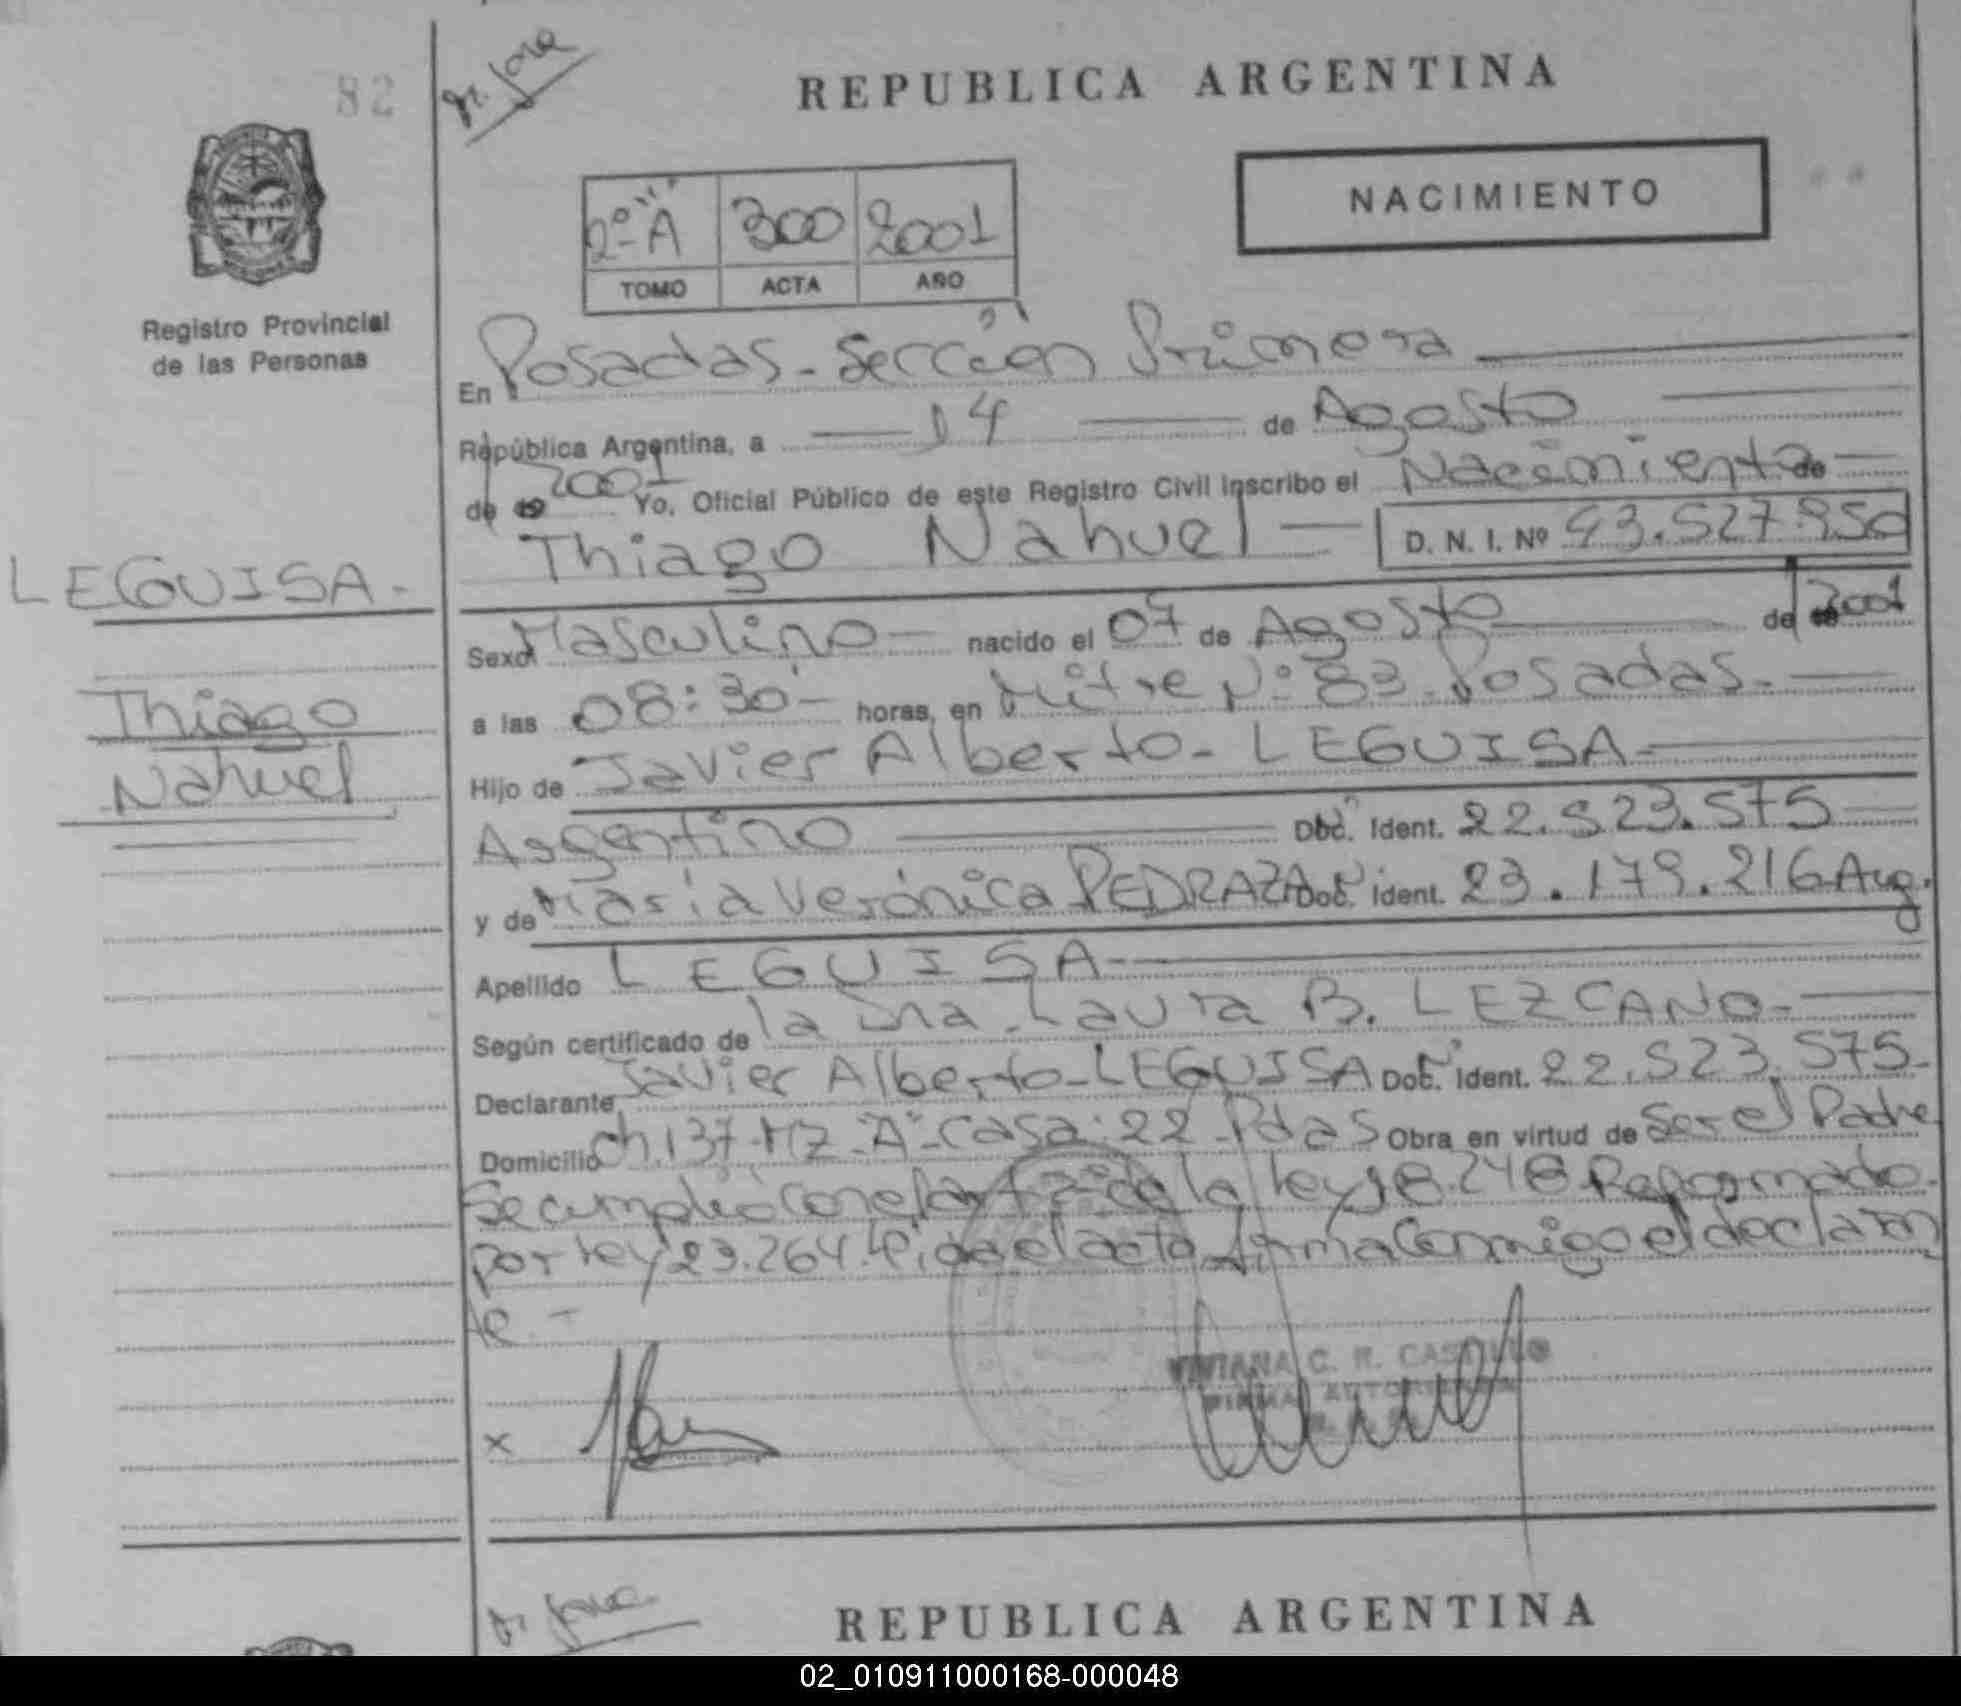 82
REPUBLICA ARGENTINA
NACIMIENTO
2º "A" 300 2001
TOMO ACTA AÑO
Registro Provincial
de las Personas
En Posadas - Sección Primera
República Argentina, a 14 de Agosto
de 19 2001 Yo, Oficial Público de este Registro Civil inscribo el Nacimiento de
Thiago Nahuel D. N. I. Nº 43.527.950
LEGUISA.-
Thiago
Nahuel
Sexo Masculino nacido el 07 de Agosto de 19 2001
a las 08:30 horas, en Mitre Nº 83 - Posadas.-
Hijo de Javier Alberto - LEGUISA
Argentino Doc. Ident. 22.523.575
y de María Verónica PEDRAZA Doc. Ident. 23.179.216 Arg.
Apellido LEGUISA
Según certificado de la Dra. Laura B. LEZCANO
Declarante Javier Alberto - LEGUISA Doc. Ident. 22.523.575-
Domicilio Ch.137-MZ "A" - Casa: 22 - Pdas Obra en virtud de Ser el Padre
Se cumplió con el art 2º de la ley 18.248 Reformado
por ley 23.264. el acta firma Conmigo el declaran
te.-
VIVIANA C. R. CASTILLO
FIRMA AUTORIZADA
x
REPUBLICA ARGENTINA
02_010911000168-000048